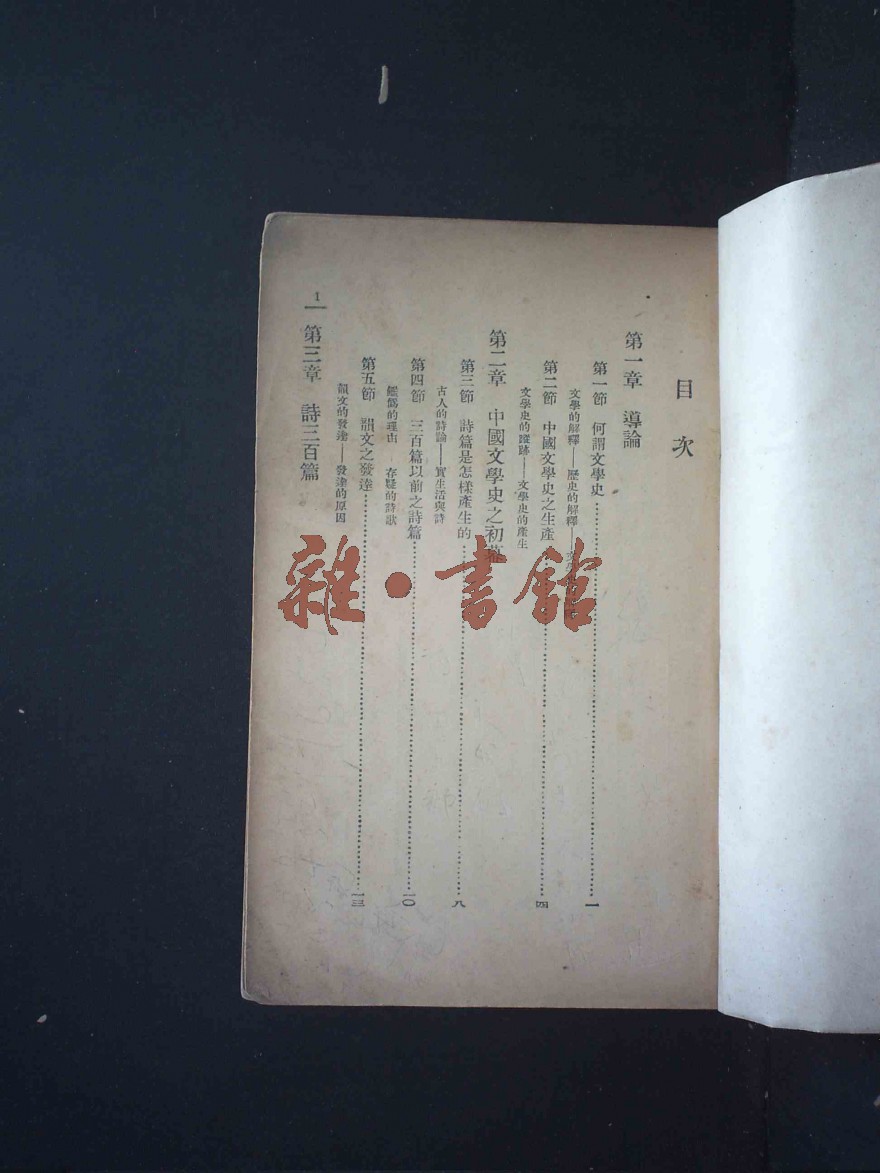 目次
第一章 導論
第一節 何謂文學史 一
文學的解釋——歷史的解釋——文學
第二節 中國文學史之生產 四
文學史的蹤跡——文學史的產生
第二章 中國文學史之初幕
第三節 詩篇是怎樣產生的 八
古人的詩論——實生活與詩
第四節 三百篇以前之詩篇 一〇
僞的理由 存疑的詩歌
第五節 韻文之發達 一三
韻文的發達——發達的原因
第三章 詩三百篇
1
雜·書館